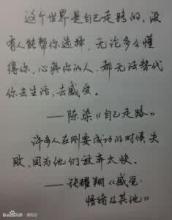 这个世界是自己走的，没
有人能帮你选择，无论多么懂
得你，心疼你的人，都无法替代
你去生活、去感受。
——陈染《自己走路》
许多人在刚要成功的时候失
败，因为他们放弃太快。
——张耀翔《感觉、
情绪及其他》